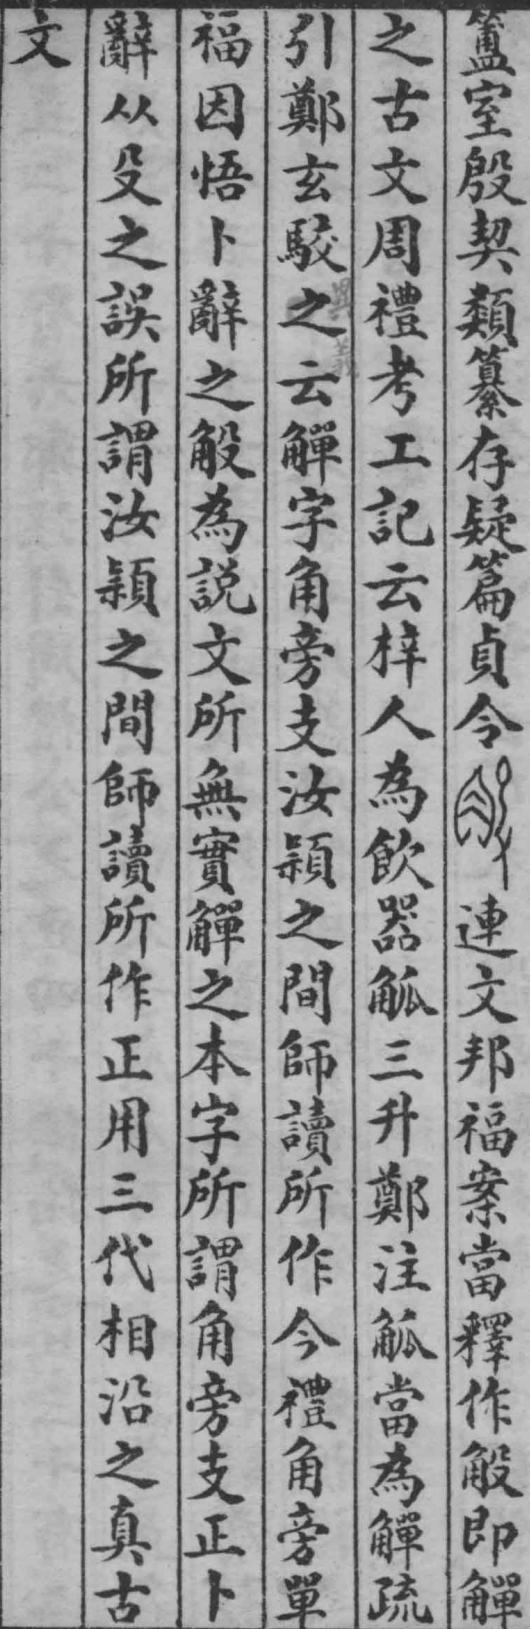 簠室殷契類纂存疑篇貞令連文邦福案當釋作𣪊即觶
之古文周禮考工記云梓人為飲器觚三升鄭注觚當為觶疏
引鄭玄駮之云觶字角旁支汝潁之間師讀所作今禮角旁單
異義
福因悟卜辭之𧣈為説文所無實觶之本字所謂角旁支正卜
辭从殳之誤所謂汝潁之間師讀所作正用三代相沿之真古
文